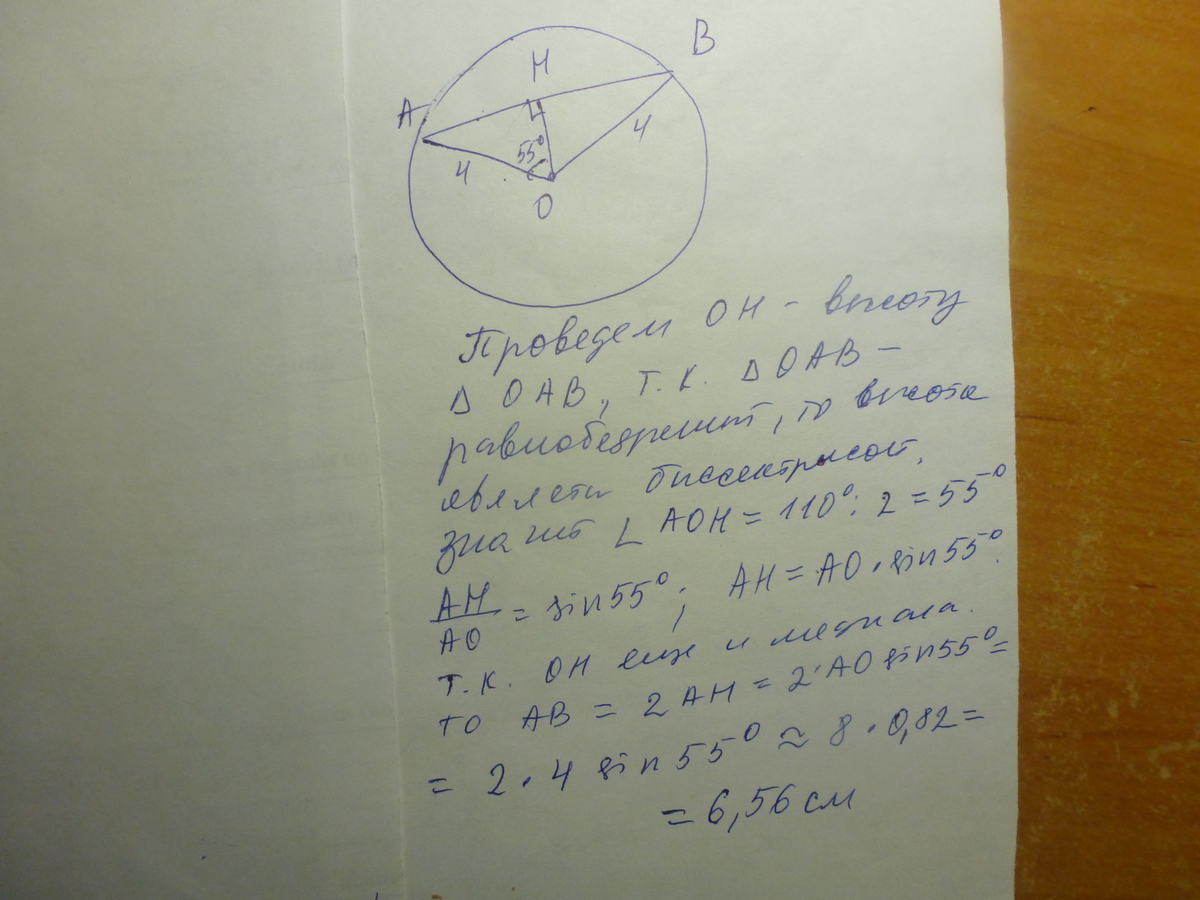 B
H
A
55°
4
4
O
Проведем OH - высоту
Δ OAB, т.к. Δ OAB -
равнобедренный, то высота
является биссектрисой,
значит ∠ AOH = 110° : 2 = 55°
AH/AO = sin 55° ; AH = AO · sin 55°.
т.к. OH еще и медиана.
то AB = 2 AH = 2 · AO sin 55° =
= 2 · 4 sin 55° ≈ 8 · 0,82 =
= 6,56 см